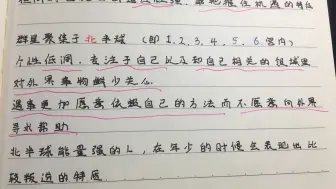 群星聚集于北半球（即1.2.3.4.5.6.宫内）
个性低调，专注于自己以及和自己相关的领域里
对外界事物鲜少关心
遇事更加愿意依照自己的方法而不愿意向外界
寻求帮助
北半球能量强的人，在年少的时候会表现出比
较叛逆的特质